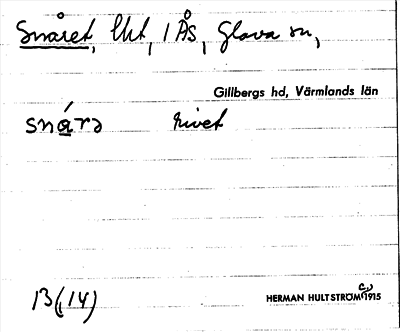 Snåret, Ukt, 1 Ås, Glava sn,
Gillbergs hd, Värmlands län
snárə rivet
13(14)
HERMAN HULTSTRÖM C) 1915